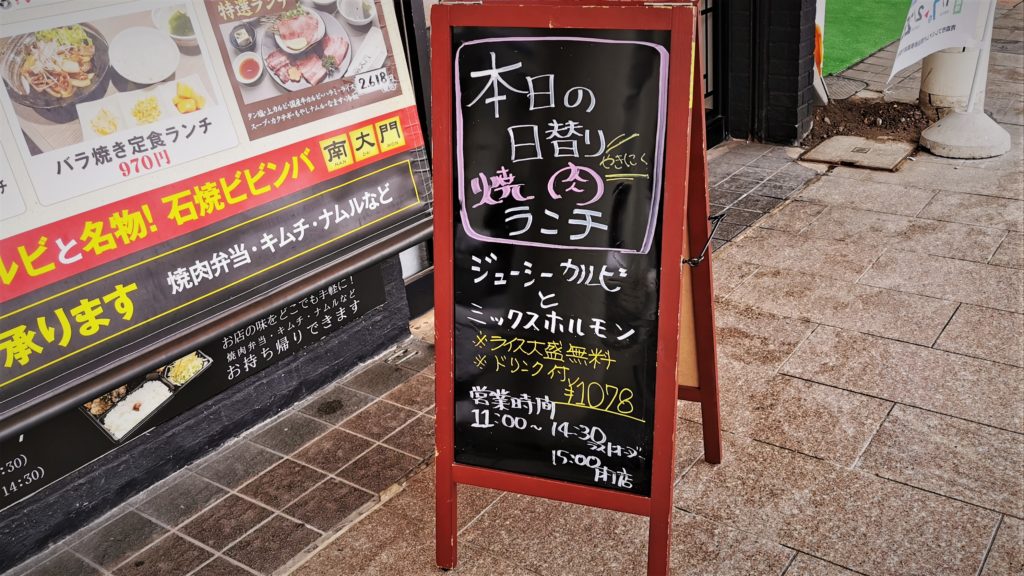 特選ランチ
2,618円
バラ焼き定食ランチ
970円
ルビと名物! 石焼ビビンバ 南大門
承ります 焼肉弁当・キムチ・ナムルなど
お店の味をどこでも手軽に!
焼肉弁当・キムチ・ナムルなど
お持ち帰りできます
:30)
14:30)
本日の
日替り
やきにく
焼(肉)
ランチ
ジューシーカルビ
と
ミックスホルモン
※ライス大盛無料
※ドリンク付
¥1078
営業時間
11:00～14:30
15:00
閉店